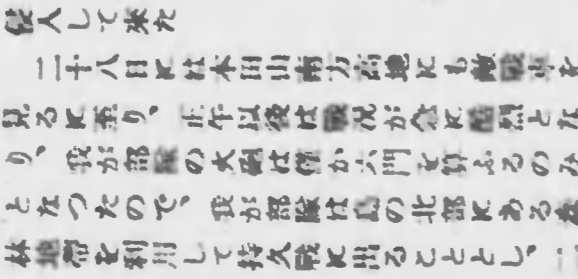 侵入して来た
二十八日には本田山南方高地にも敵戰車を
見るに至り、正午以後は戰况が急に酷烈とな
り、我が部隊の火砲は僅か六門を算ふるのみ
となつたので、我が部隊は島の北部にある
林地帶を利用して持久戰に出ることとし、二